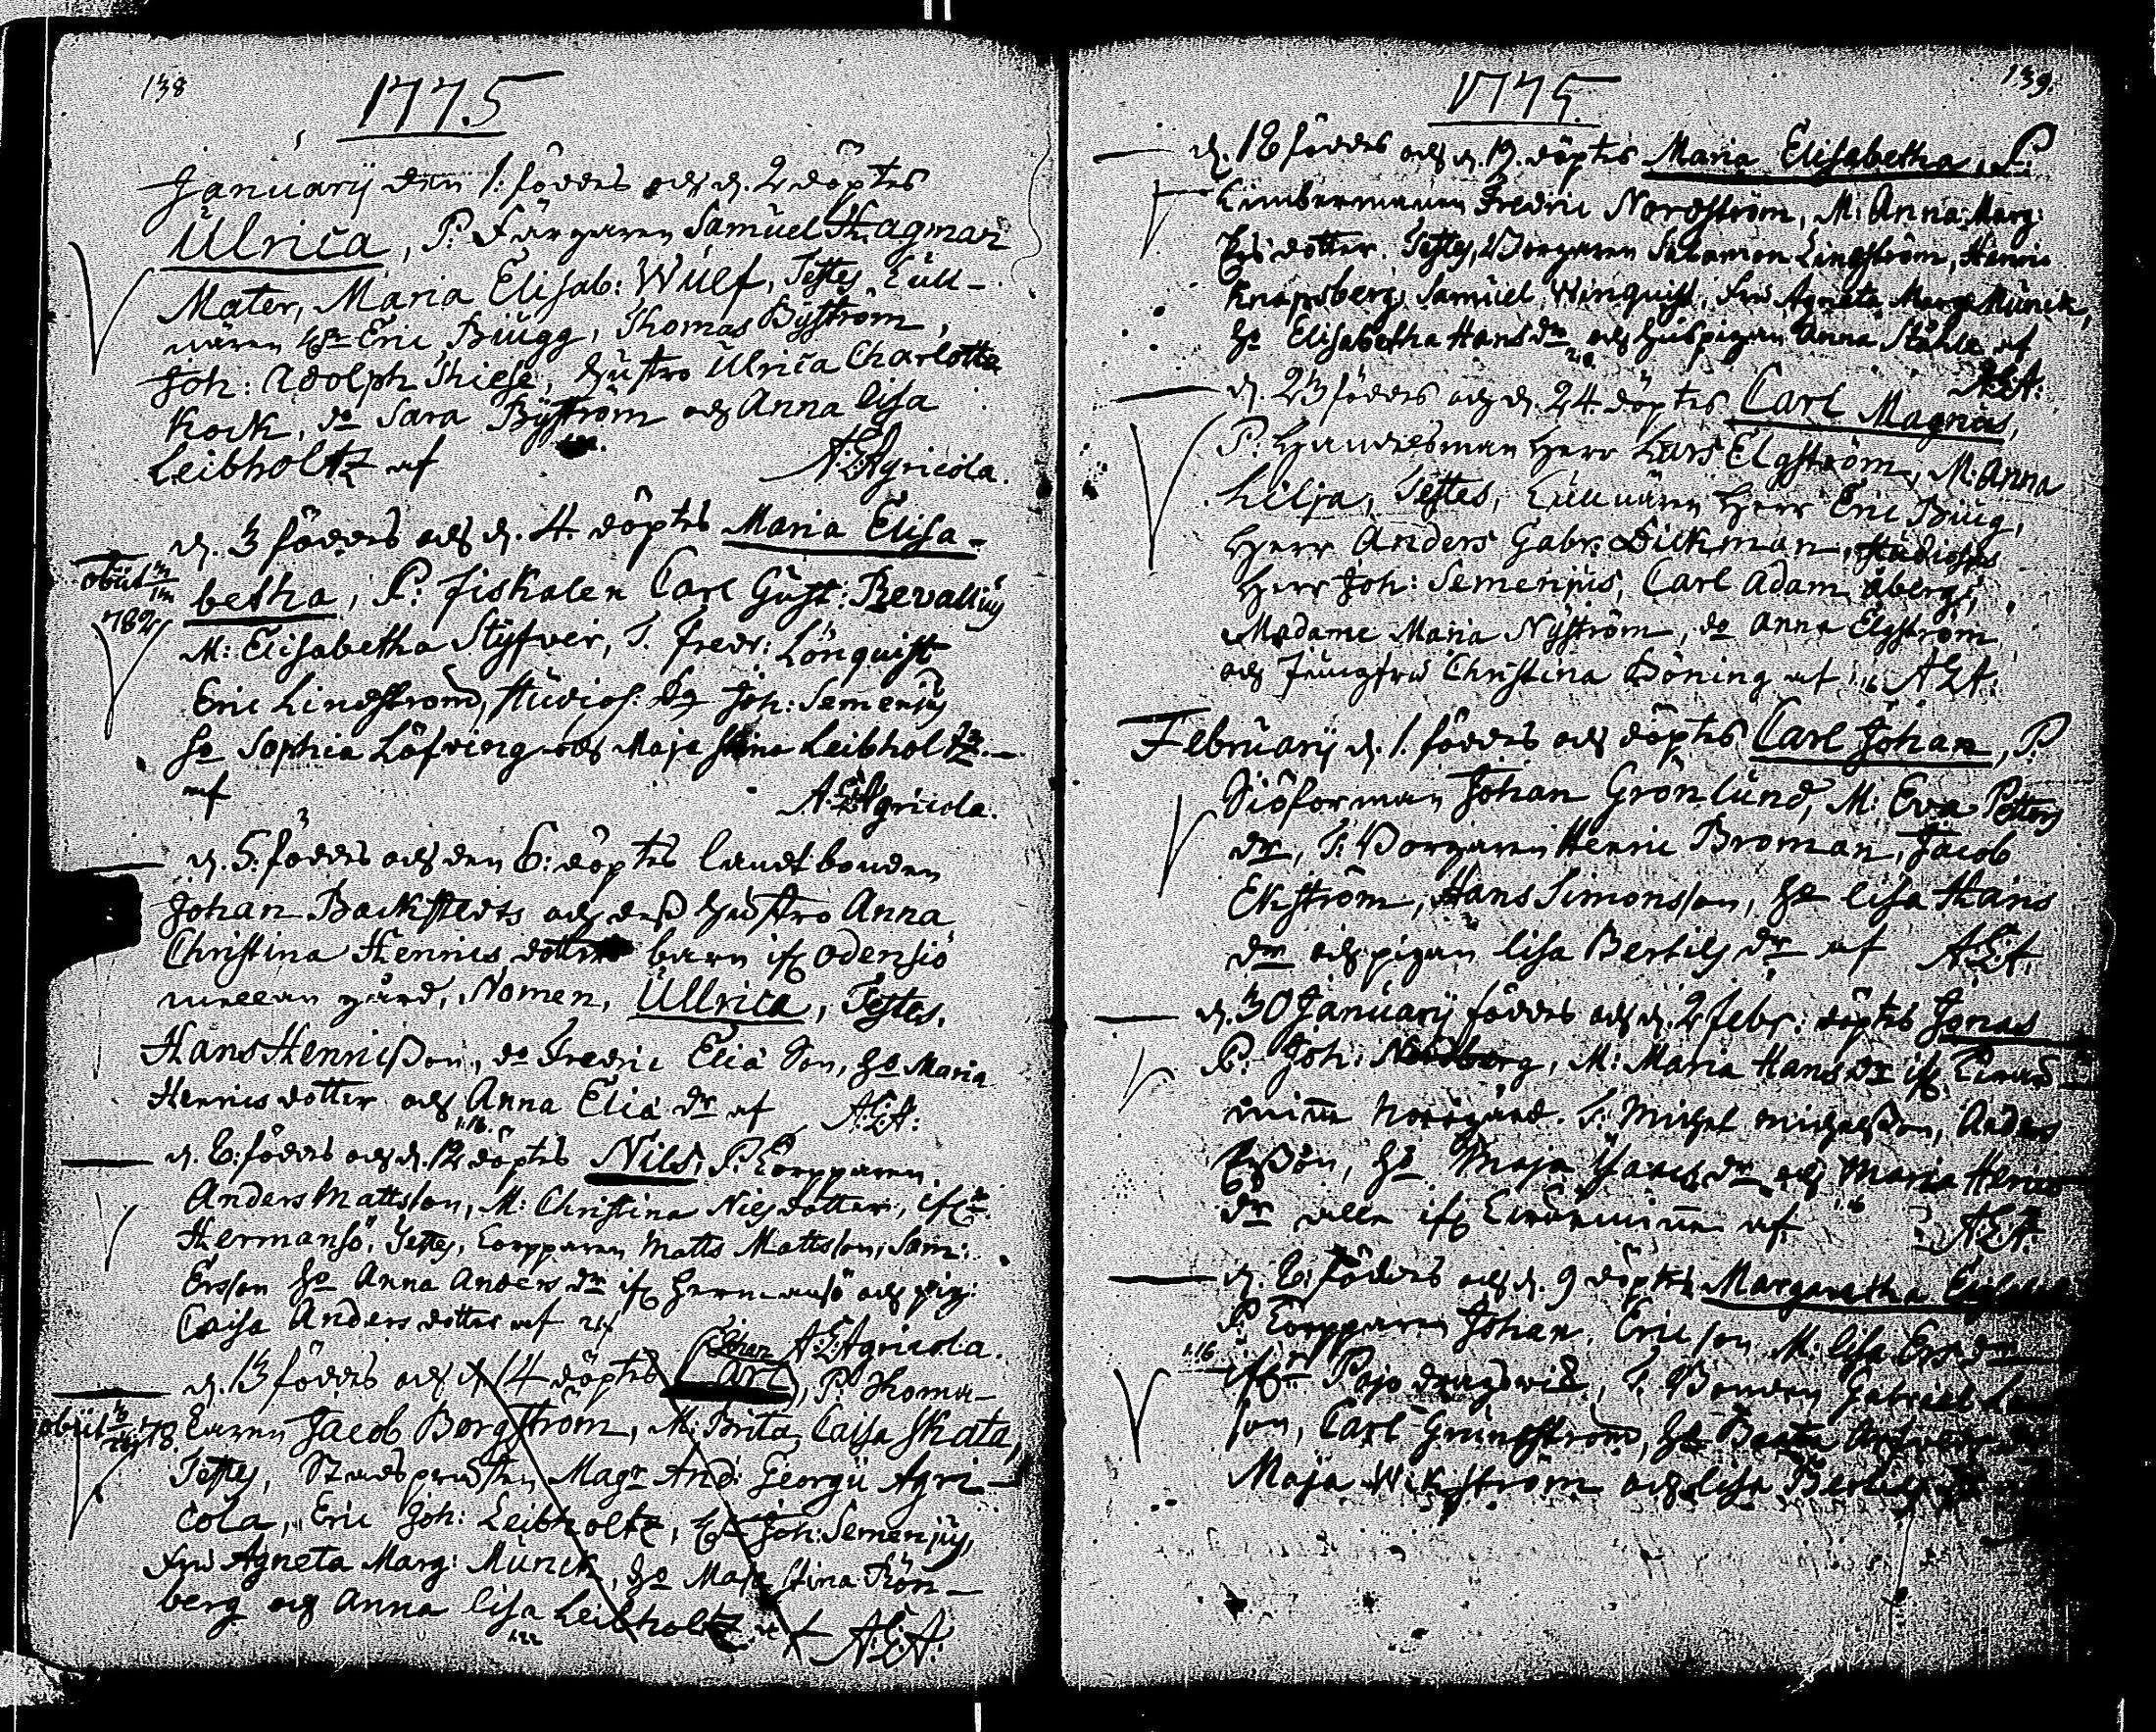 138
1775
Januarij den 1. föddes och d. 2 döptes
Ulrica, P. Färgaren Samuel Hagmar
Mater, Maria Elisab: Wulf, Testes, Tull-
nären Hr Eric Biugg, Thomas Byström,
Joh: Adolph Thiese, hustro Ulrica Charlotta
Kock, do Sara Byström och Anna Lisa
Leibholtz af A.G.Agricola.
d. 3 föddes och d. 4. döptes Maria Elisa-
betha, P. fiskalen Carl Gust: Revallius
obiit
1782
M: Elisabetha Styfver, T. Fredr: Lönquist
Eric Lindström, studios: Joh: Semenius
ho Sophia Löfving och Maja Stina Leibholtz
af A.G.Agricola.
d. 5. föddes och den 6. döptes landtbonden
Johan Backstedts och dess hustro Anna
Christina Hennics dotter barn ifr Odensiö
mellan gård, Nomen, Ullrica, Testes,
Hans Henricsson, do Fredric Elia Son, ho Maria
Henricsdotter och Anna Elia dr af A.G.A:
d. 8. föddes och d. 12 döptes Nils, P. Torpparen
Anders Mattsson, M: Christina Nilsdotter, ifrn
Hermansö, Testes, torpparen Matts Mattsson, Sam:
Ersson ho Anna Anders dr ifr Hermansö och pig:
Caisa Andersdotter af A.G.Agricola.
d. 13 föddes och d. 14 döptes Johan Carl, P. Thoma-
obiit 778.
karen Jacob Borgström, M: Brita Caisa Skata,
Testes, Stadsprästen Magr And: Georgii Agri-
cola, Eric Joh: Leibholtz, Hr Joh: Semenius,
Fru Agneta Marg: Munck, ho Maja Stina Rön-
berg och Anna Lisa Leibholtz af A.G.A:
139.
1775.
d. 18 föddes och d. 19. döptes Maria Elisabetha, P.
Timbermannen Fredric Nordström, M: Anna Marg:
Ersdotter. Testes, Borgaren Salomon Lindström, Henric
Knapsberg, Samuel Winquist, Fru Agneta Marg: Munck,
ho Elisabetha Hans dr och huspigan Anna Ståhle af
A.G.A:
d. 23 föddes och d. 24. döptes Carl Magnus,
P. Handelsman Herr Lars Elgström, M: Anna
Lilja, Testes, Tullnären Herr Eric Biug,
Herr Anders Gabr: Dickman, Studiosus
Herr Joh: Semenius, Carl Adam Åberg,
Madame Maria Nyström, do Anna Elgström
och Jungfru Christina Böning af A.G.A:
Februarij d. 1. föddes och döptes Carl Johan, P.
Siöforman Johan Grönlund, M: Eva Petters
dr, T. Borgaren Henric Broman, Jacob
Ekström, Hans Simonsson, ho Lisa Hans
dr och pigan Lisa Bertils dr af A.G.A.
d. 30 Januarij föddes och d. 2 febr: döptes Jonas
P. Joh: Nordberg, M: Maria Hans dr ifr
norrgård. T: Michel Michelsson, Anders
Ersson, ho Maja Isacs dr och Maria Henrics
dr alla ifr af A.G.A:
d. 8. föddes och d. 9 döptes Margaretha
P. Torpparen Johan Ericsson M: Lisa Ers dr
ifrn Pojo, T. Bonden Gabriel
son, Carl Grundström, ho Beata
Maja Wikström och Lisa Bertils